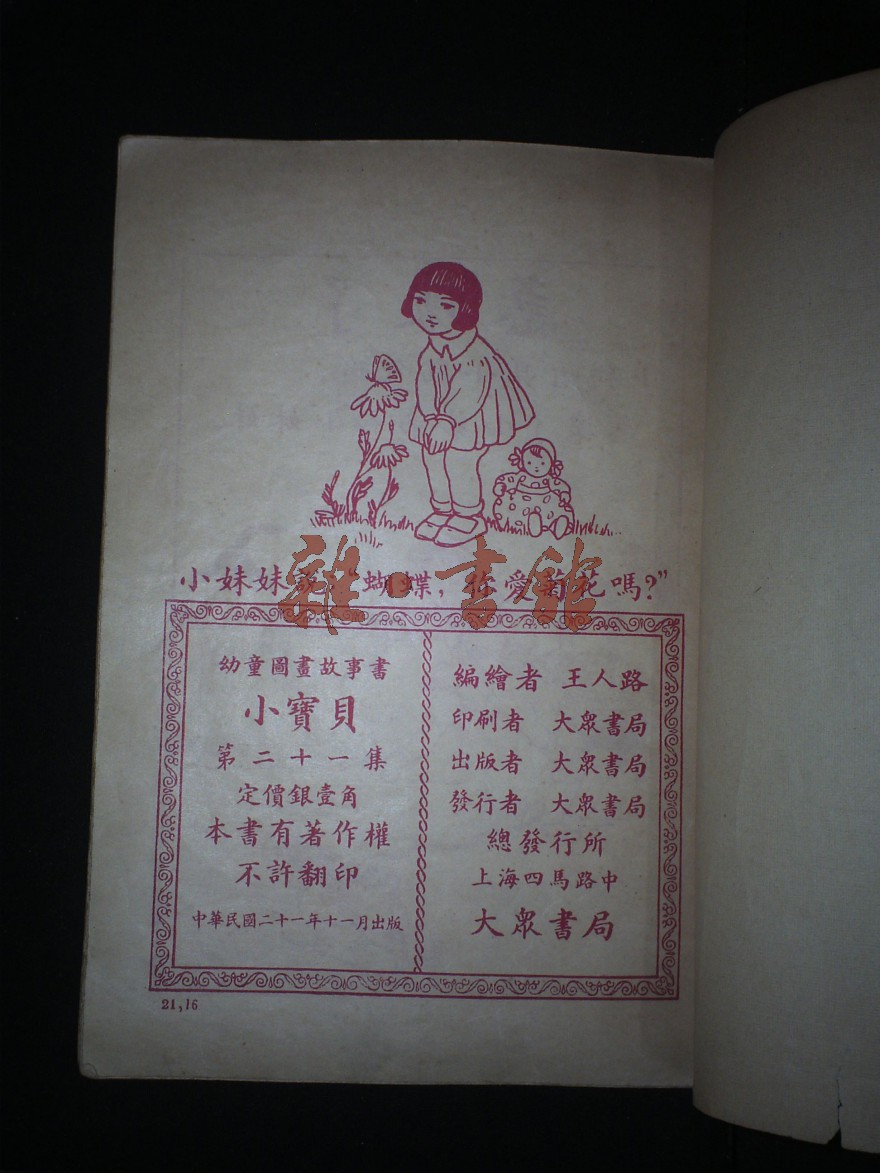 小妹妹說:“蝴蝶，你愛菊花嗎?”
雜·書館
幼童圖畫故事書
小寶貝
第二十一集
定價銀壹角
本書有著作權
不許翻印
中華民國二十一年十一月出版
編繪者 王人路
印刷者 大眾書局
出版者 大眾書局
發行者 大眾書局
總發行所
上海四馬路中
大眾書局
21,16